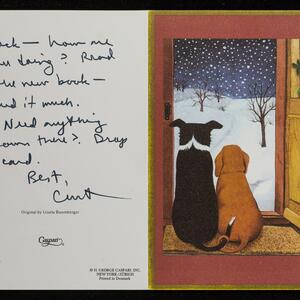 ck — how are
doing? Read
new book —
it much.
Need anything
down there? Drop
card.
Best,
Original by Lisette
Caspari
© H. GEORGE CASPARI, INC.
NEW YORK/ZÜRICH
Printed in Denmark